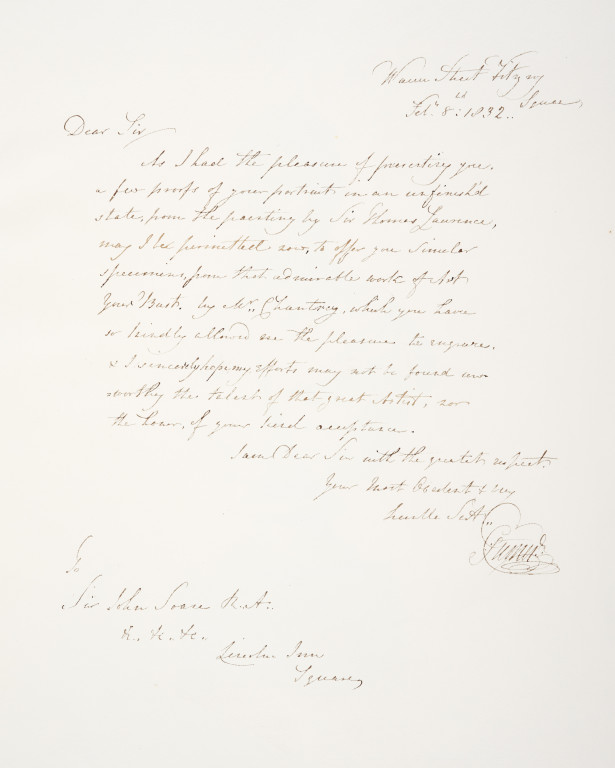 Warren Street Fitzroy
Square,
Feb. 8: 1832..
Dear Sir
As I had the pleasure of presenting you.
a few proofs of your portrait in an unfinish'd
state, from the painting by Sir Thomas Lawrence,
may I be permitted now, to offer you similar
specimens, from that admirable work of Art
Your Bust. by Mr. Chantrey, which you have
so kindly allowed me the pleasure to engrave.
& I sincerely hope my efforts may not be found un-
=worthy the talent of that great Artist, nor
the honor, of your kind acceptance.
I am Dear Sir with the greatest respect.
Your Most Obedient & very
humble Sert.
To
Sir John Soane R.A:.
&. &. &c.
Lincolns Inn
Square,